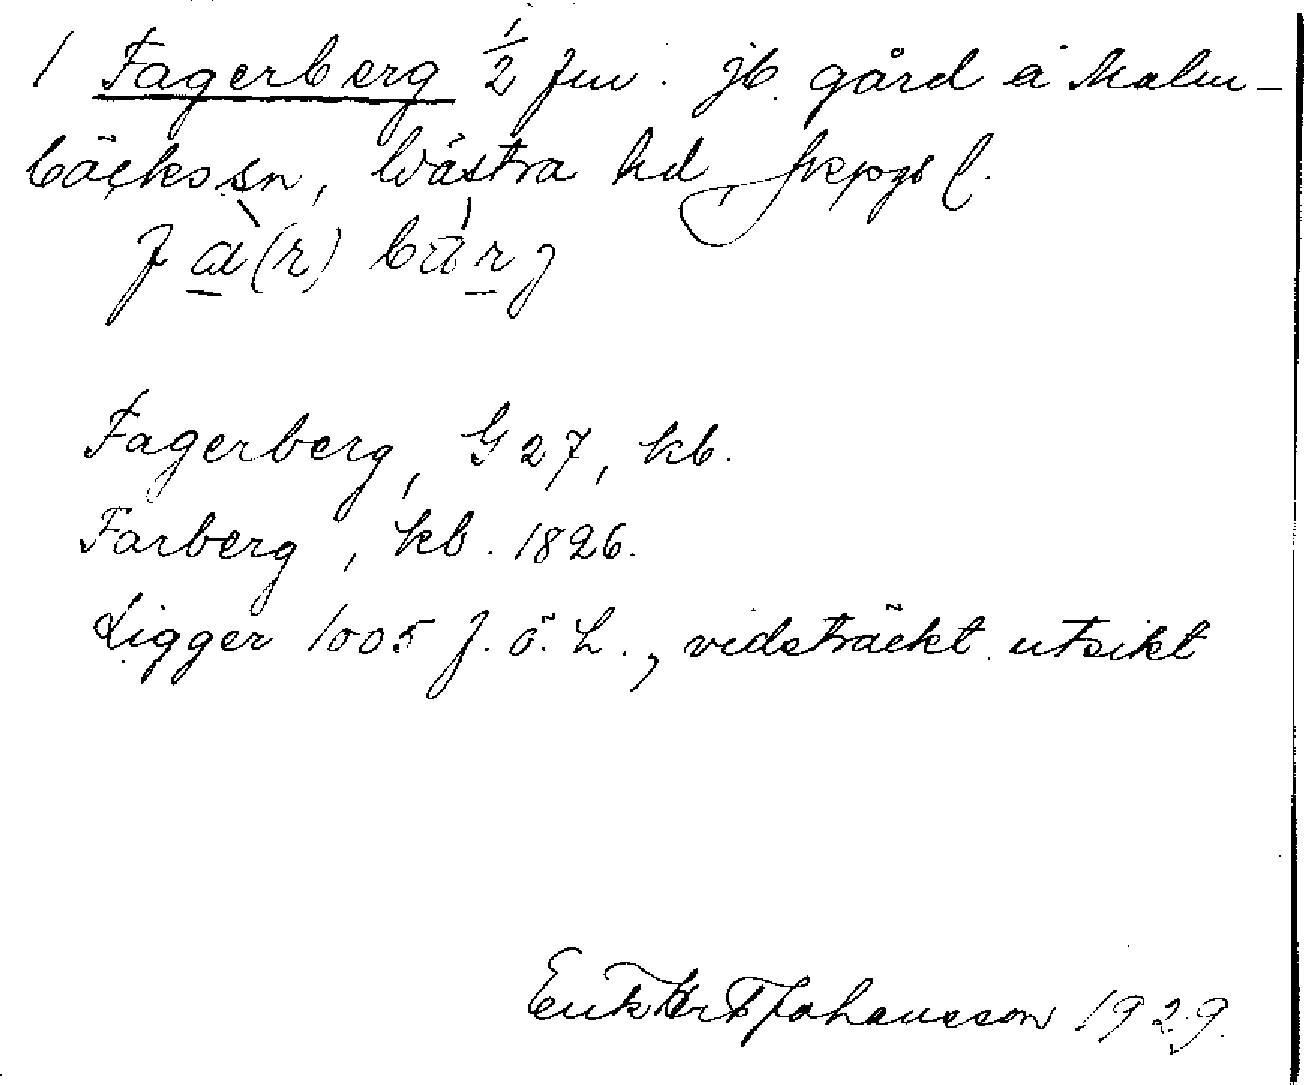 1 Fagerberg ½ fm. jb. gård i Malm-
bäcks sn, Västra hd, Jkpgs l.
fa(r) bärj
Fagerberg, G 27, kb.
Farberg, kb. 1826.
Ligger 1005 f. ö. h., vidsträckt utsikt
Johansson 1929.